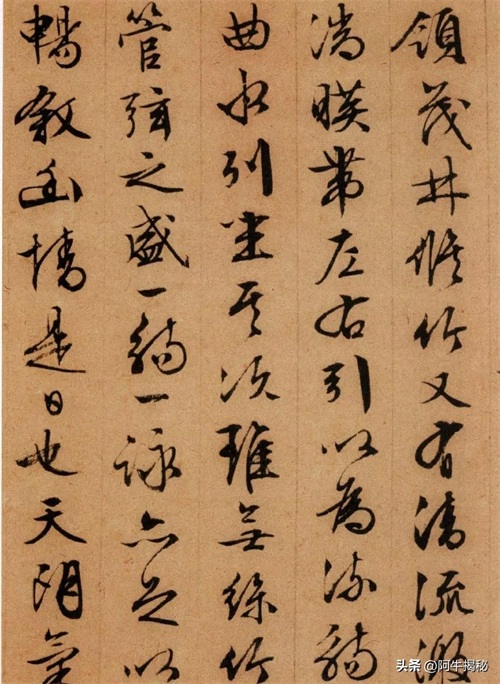 領茂林脩竹又有清流激
湍暎帶左右引以為流觴
曲水列坐其次雖無絲竹
管弦之盛一觴一詠亦足以
暢敘幽情是日也天朗氣
头条 @阿牛揭秘